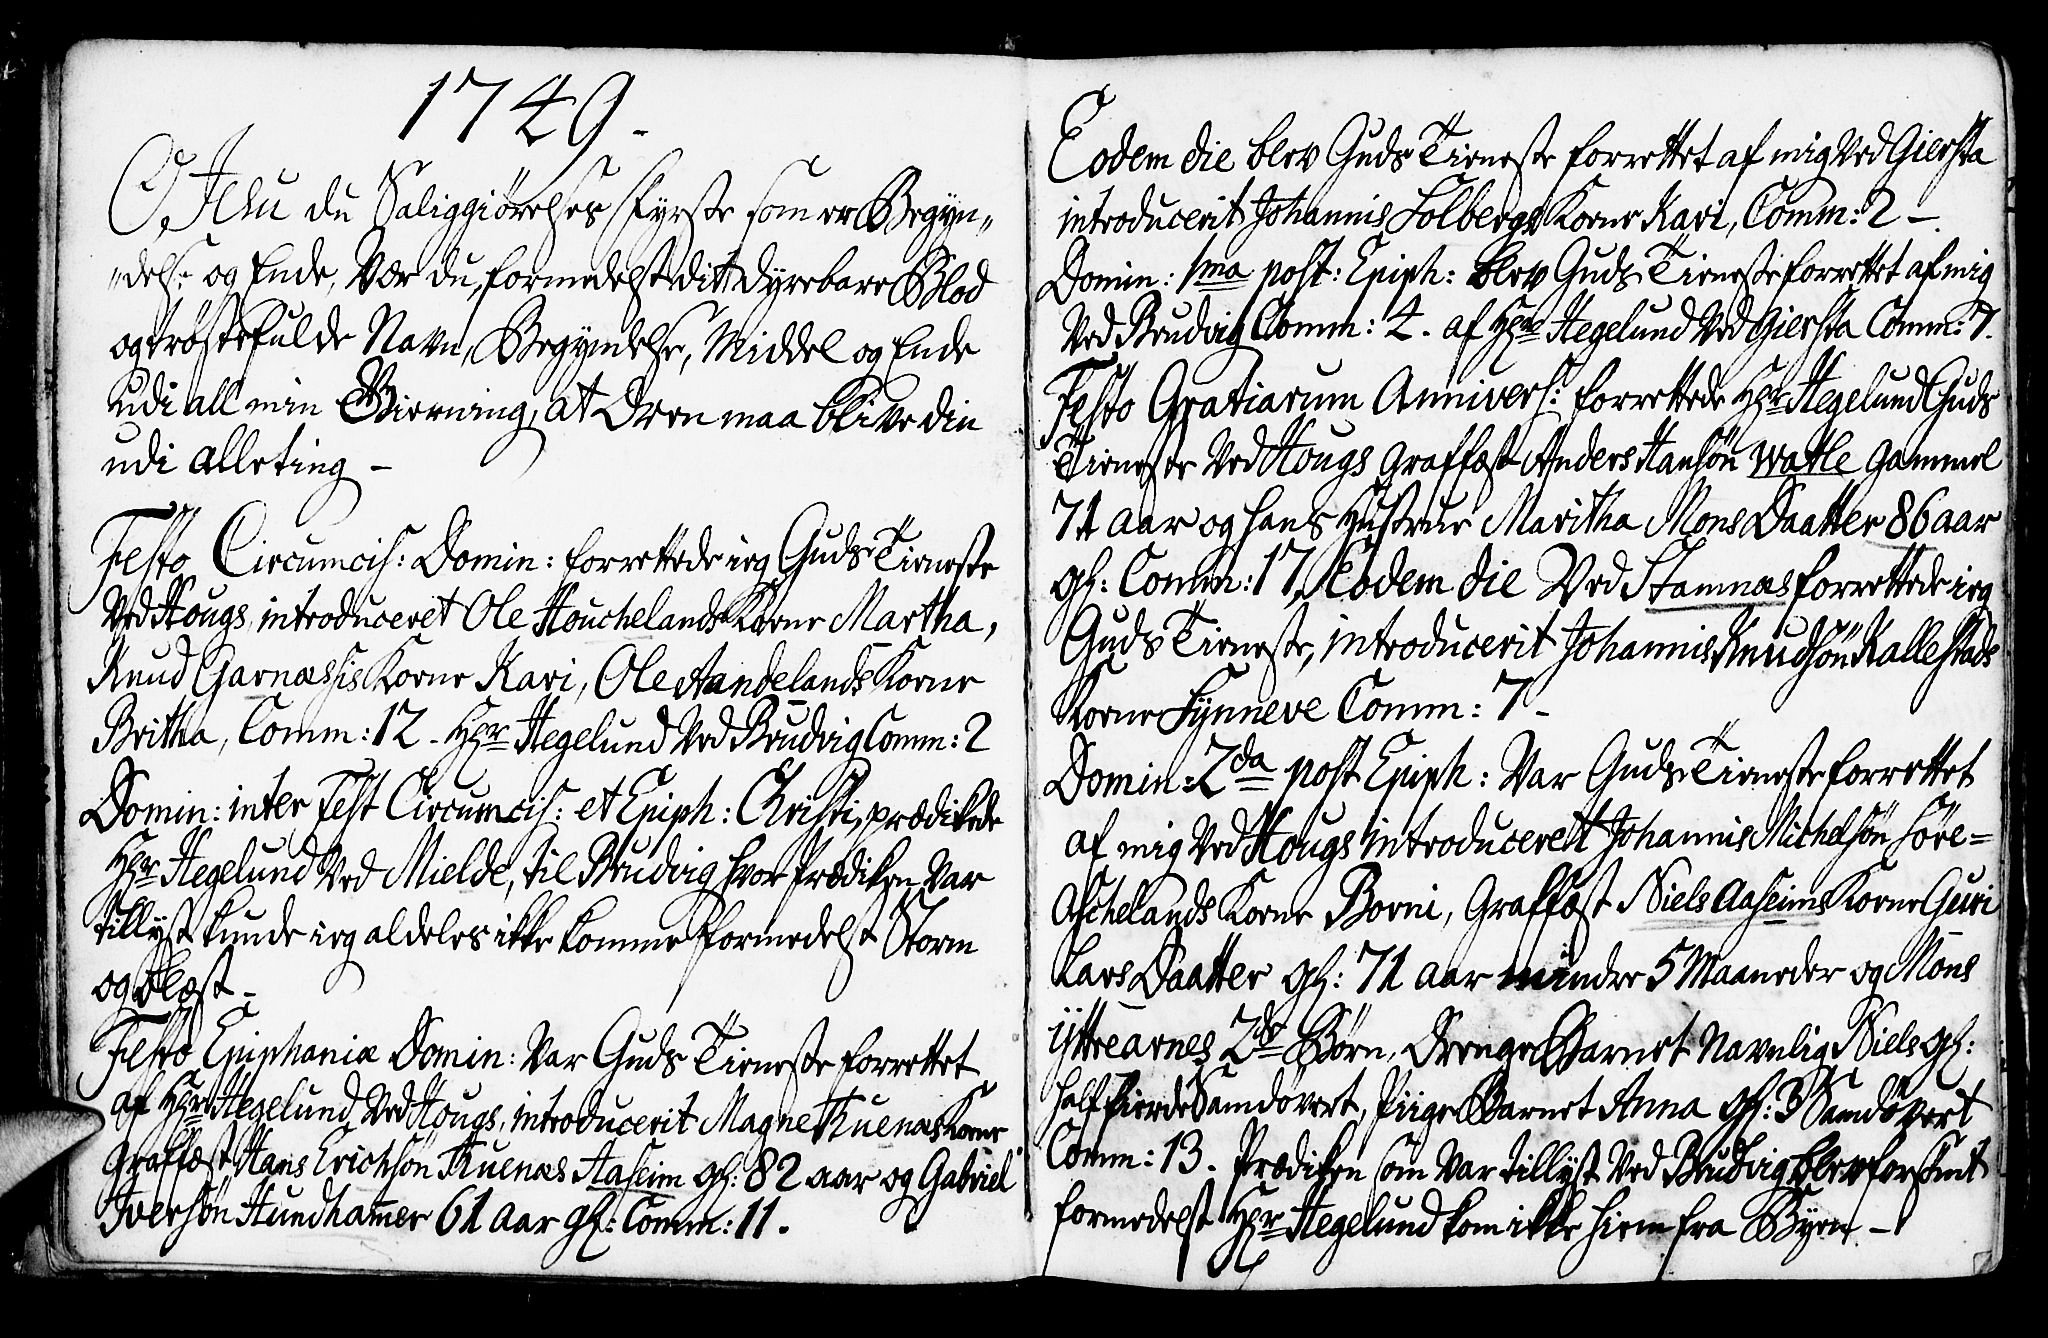 1749.
O Jesu du Saliggiørelses Fyrste som er Begyn„
„dels: og Ende, Vær du, formedelst dit dyrebare Blod
og trøstefulde Navn, Begyndelse, Middel og Ende
udi all min Gierning, at Æren maa blive din
udi alle ting –
Festo Circumcis: Domin: forrettede ieg Guds Tieneste
Ved Hougs, introduceret Ole Houchelands Kone Martha,
Knud Garnæssis Kone Kari, Ole Aandelands Kone
Britha, Comm: 12. Hr Hegelund Ved Brudvig Comm: 2
Domin: inter Fest Circumcis: et Epiph: Christi, prædikede
Hr Hegelund Ved Mielde, til Brudvig hvor Prædiken Var
tillyst kunde ieg aldeles ikke komme formedelst Storm
og Blæst –
Festo Epiphaniæ Domin: Var Guds Tieneste forrettet
af Hr Hegelund Ved Hougs, introducerit Magne Tuenæs Kone
Graffæst Hans Erichsøn Tuenæs Aaseim gl: 82 aar og Gabriel
Iversøn Hundhamer 61 aar gl: Comm: 11.
Eodem die blev Guds Tieneste forrettet af mig Ved Giersta
introducerit Johannis Solbergs Kone Kari, Comm: 2 –.
Domin: 1ma post: Epiph: blev Guds Tieneste forrettet af mig
Ved Brudvig Comm: 4. af Hr Hegelund Ved Giersta Comm: 7.
Festo Gratiarum Annivers: forrettede Hr Hegelund Guds
Tieneste Ved Hougs Graffæst Anders Hansøn Watle gammel
71 aar og hans Hustrue Maritha Mons Daatter 86 aar
gl: Comm: 17, Eodem die Ved Stamnæs forrettede ieg
Guds Tieneste, introducerit Johannis Knudsøn Kallestads
Kone Synneve Comm: 7 –
Domin: 2da post Epiph: Var Guds Tieneste forrettet
af mig Ved Hougs introducerit Johannis Michelsøn Søre=
Aschelands Kone Borni, Graffæst Niels Aaseims Kone Guri
Lars Daatter gl: 71 aar mindre 5 Maaneder og Mons
Yttrearnes 2de Børn, Drenge Barnet Navnlig Niels gl:
half fierde Samdøvert, Piige Barnet Anna gl: 3 Samdøvert
Comm: 13. Prædiken som Var tillyst Ved Brudvig blev forsømt
formedelst Hr Hegelund kom ikke hiem fra Byen –